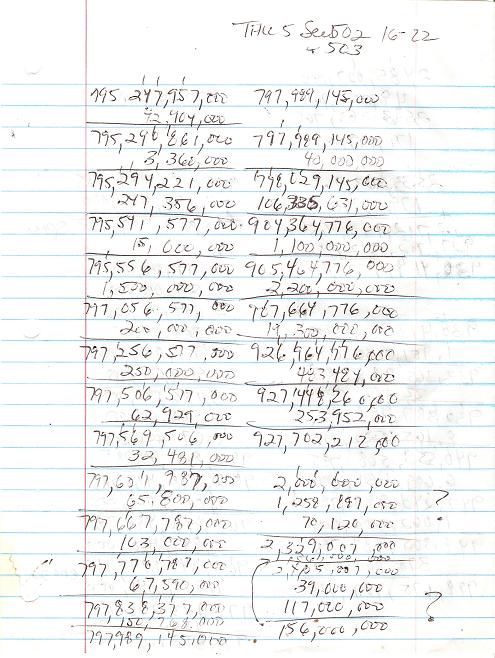 THU 5 Sec 502 16-22
+ 503
795,247,957,000
42,904,000
795,290,861,000
3,360,000
795,294,221,000
247,356,000
795,541,577,000
15,000,000
795,556,577,000
1,500,000,000
797,056,577,000
200,000,000
797,256,577,000
250,000,000
797,506,577,000
62,929,000
797,569,506,000
32,481,000
797,601,987,000
65,800,000
797,667,787,000
103,000,000
797,770,787,000
67,590,000
797,838,377,000
150,768,000
797,989,145,000
797,989,145,000
797,989,145,000
40,000,000
798,029,145,000
106,335,631,000
904,364,776,000
1,100,000,000
905,464,776,000
2,200,000,000
907,664,776,000
19,300,000,000
926,964,776,000
483,484,000
927,448,260,000
253,952,000
927,702,212,000
2,000,000,000
1,258,887,000 ?
70,120,000
2,329,007,000
2,485,007,000
39,000,000
117,000,000 ?
156,000,000